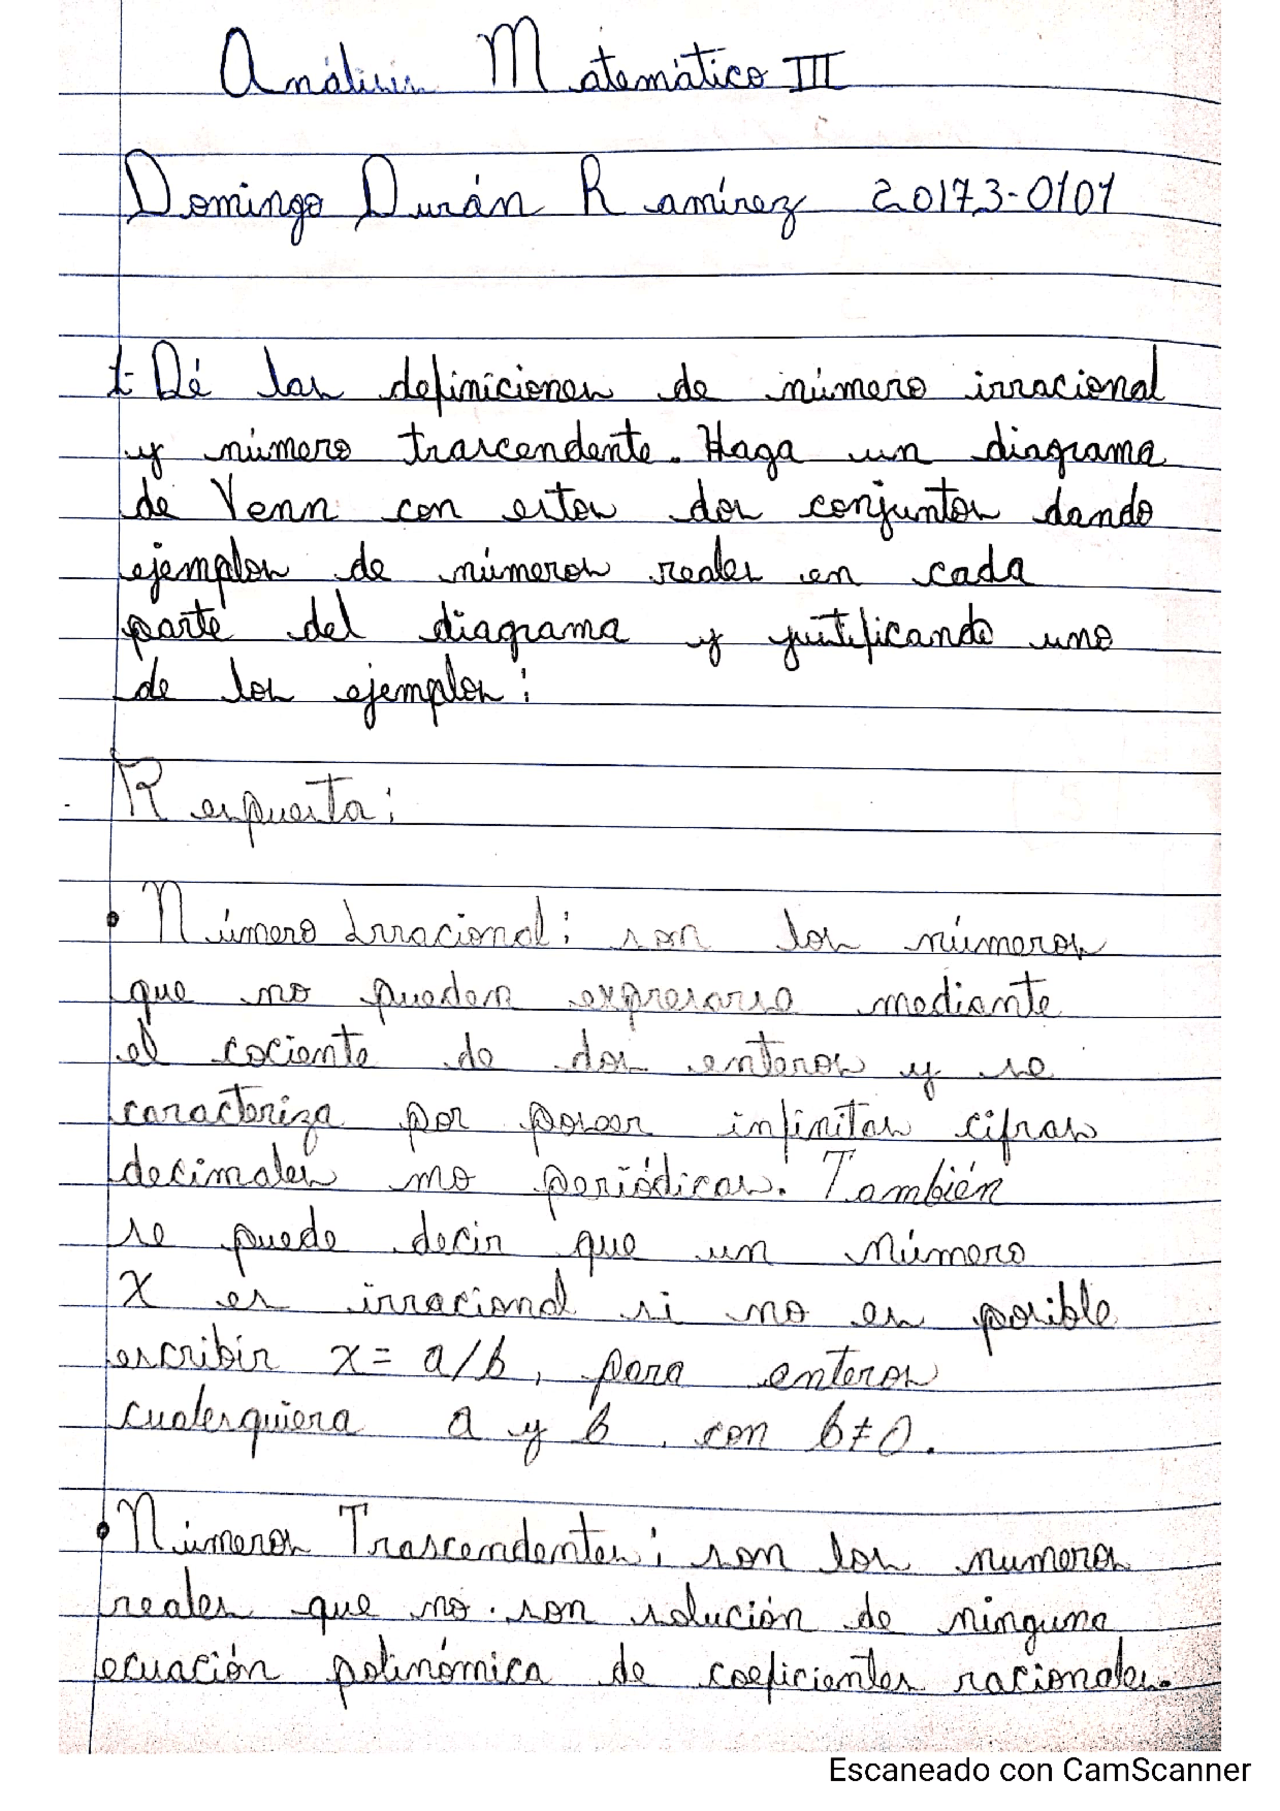 Análisis Matemático III
Domingo Durán Ramírez 20173-0101
1- Dé las definiciones de número irracional
y número trascendente. Haga un diagrama
de Venn con estos dos conjuntos dando
ejemplos de números reales en cada
parte del diagrama y justificando uno
de los ejemplos:
Respuesta:
• Número Irracional: son los números
que no pueden expresarse mediante
el cociente de dos enteros y se
caracteriza por poseer infinitas cifras
decimales no periódicas. También
se puede decir que un número
x es irracional si no es posible
escribir x = a/b, para enteros
cualesquiera a y b, con b≠0.
• Números Trascendentes: son los numeros
reales que no son solución de ninguna
ecuación polinómica de coeficientes racionales.
Escaneado con CamScanner